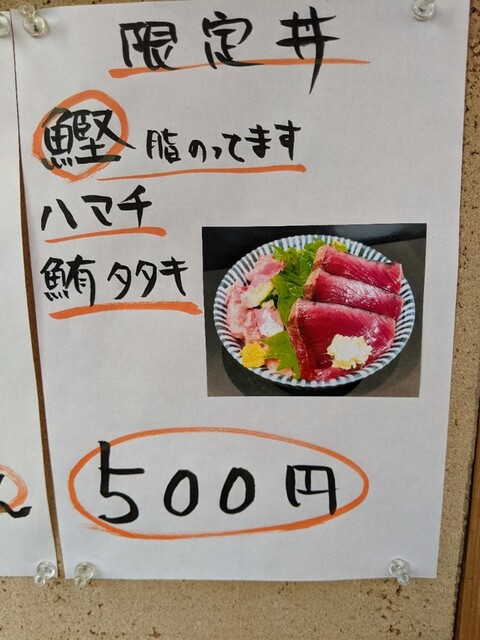 限定丼
鰹 脂のってます
ハマチ
鮪タタキ
500円
ん